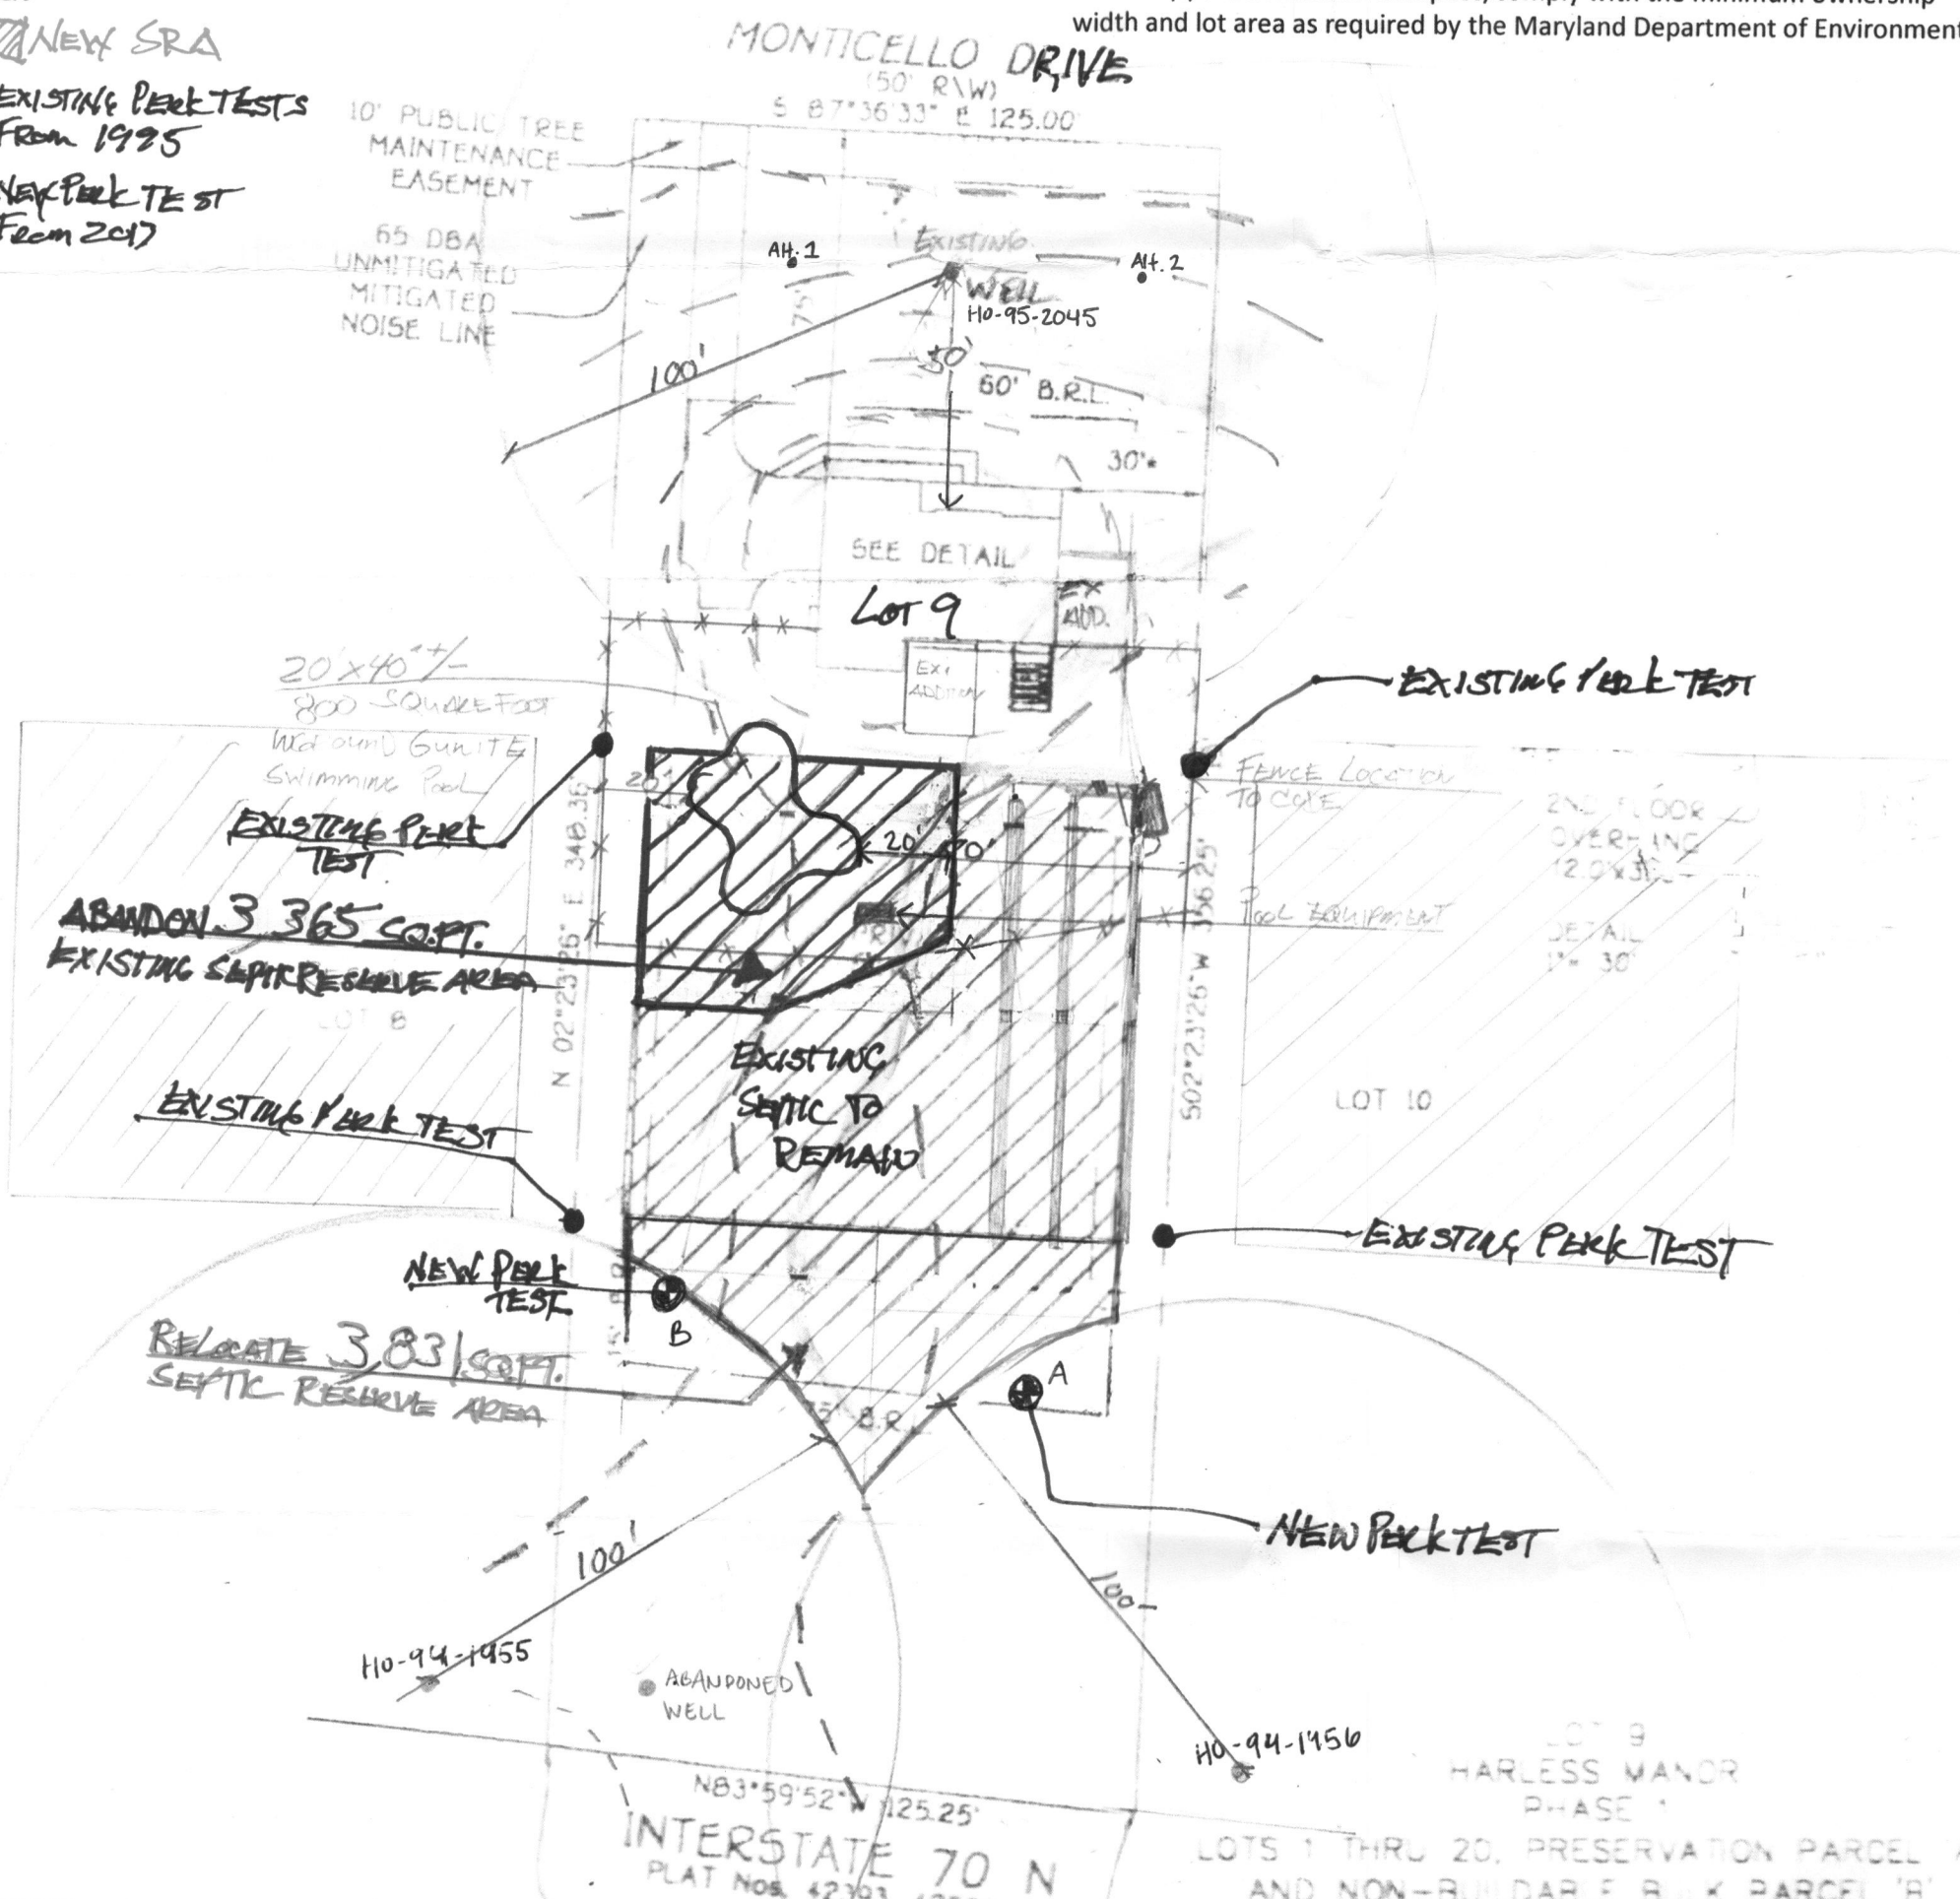 width and lot area as required by the Maryland Department of Environment
NEW SRA
EXISTING PERK TESTS
FROM 1995
NEW PERK TEST
FROM 2017
MONTICELLO DRIVE
(50' R\W)
S 87°36'33" E 125.00'
10' PUBLIC TREE
MAINTENANCE
EASEMENT
65 DBA
UNMITIGATED
MITIGATED
NOISE LINE
Alt. 1
EXISTING
WELL
HO-95-2045
Alt. 2
75'
100'
50'
60' B.R.L.
30'
SEE DETAIL
LOT 9
EX
ADD.
EX.
ADDITION
20'x40' +/-
800 SQUARE FOOT
INGROUND GUNITE
SWIMMING POOL
EXISTING PERK TEST
FENCE LOCATION
TO CODE
2ND FLOOR
OVERHANG
EXISTING PERK
TEST
20'
20'
70'
N 02°23'26" E 348.36'
S02°23'26"W 356.25'
ABANDON 3 365 SQ.FT.
EXISTING SEPTIC RESERVE AREA
POOL EQUIPMENT
DETAIL
1"= 30'
LOT 8
EXISTING
SEPTIC TO
REMAIN
LOT 10
EXISTING PERK TEST
EXISTING PERK TEST
NEW PERK
TEST
B
A
RELOCATE 3,831 SQ.FT.
SEPTIC RESERVE AREA
NEW PERK TEST
100'
100-
HO-94-1955
ABANDONED
WELL
HO-94-1956
N83°59'52"W 125.25'
INTERSTATE 70 N
PLAT Nos.
LOT 9
HARLESS MANOR
PHASE 1
LOTS 1 THRU 20, PRESERVATION PARCEL
AND NON-BUILDABLE BULK PARCEL 'B'